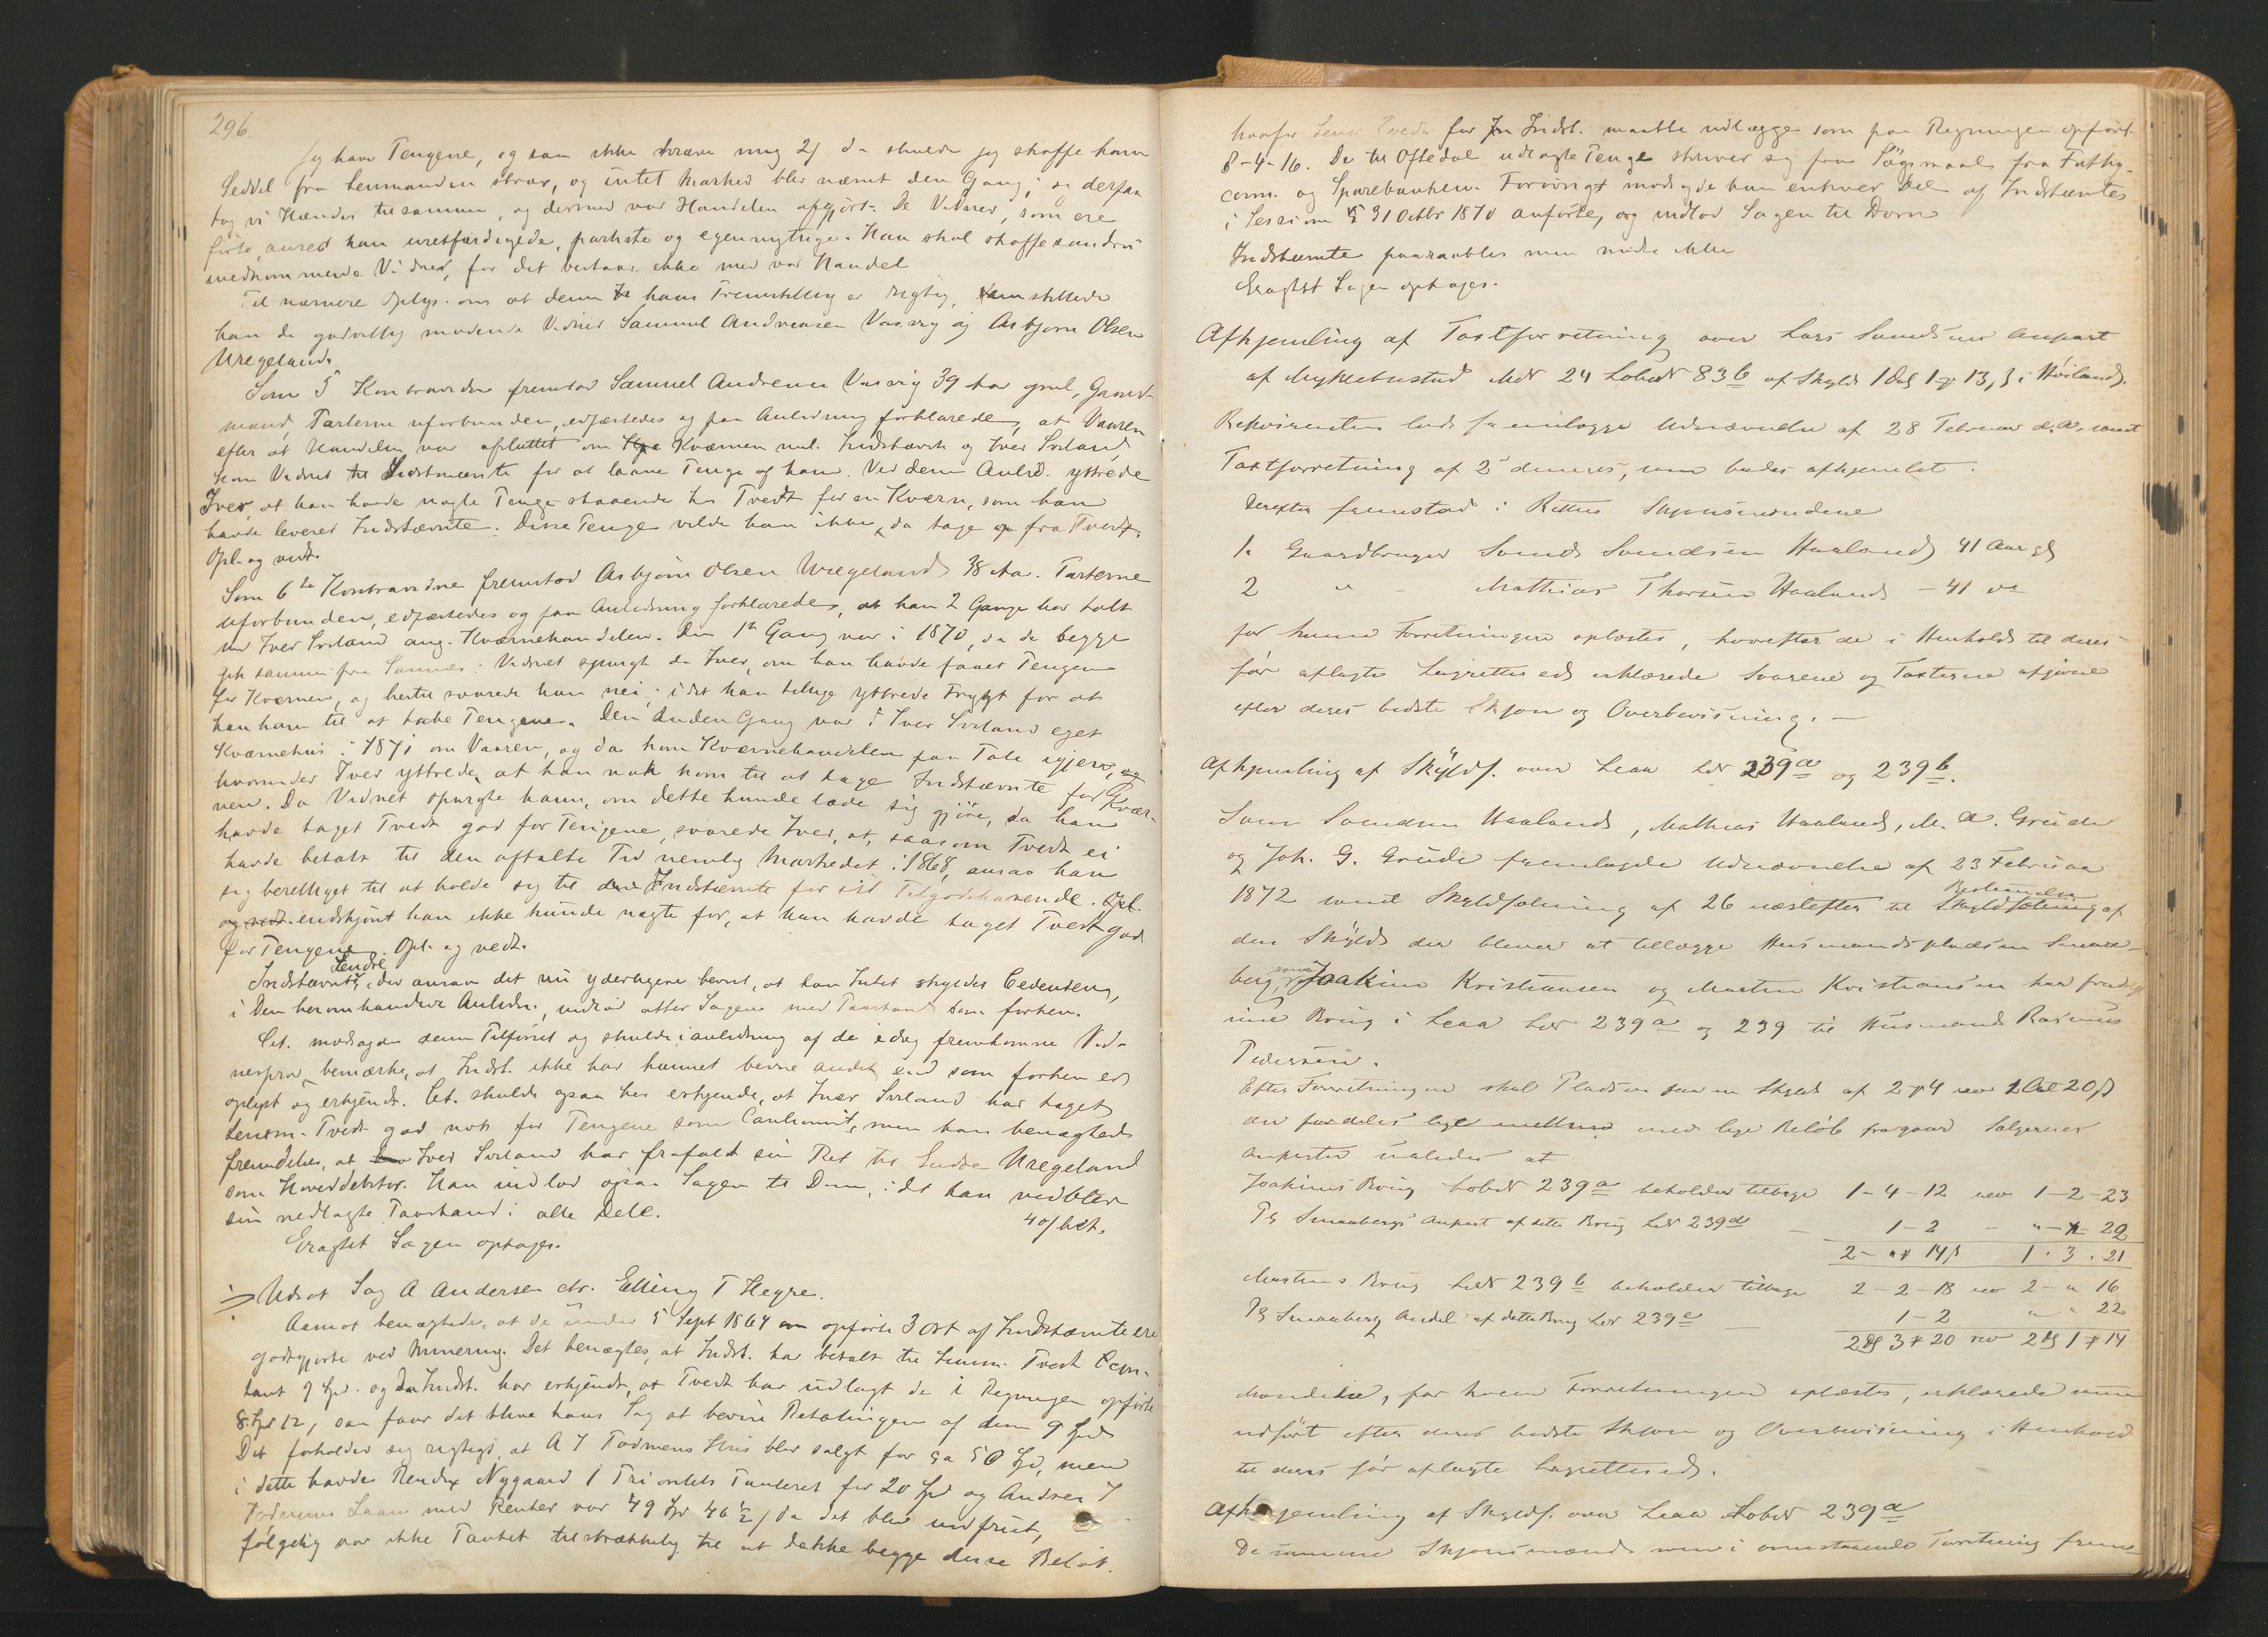 296.
Jeg have Tengene, og kan ikke kræve mig 2/ da skulde jeg skaffe ham
Seddel fra Lensmanden strax, og intet Marked blev nævnt den Gang; og derpaa
tog vi Hænder tilsammen, og dermed var Handelen afgjort. De Vidner, som ere
førte, anser han uretfærdigede, partiske og egennyttige. Han skal skaffe
uvedkommende Vidner, for det bestaar ikke med vor Handel
Til nærmere Oplys. om at denne hans Fremstilling er rigtig, fremstillede
han de godvillig mødende Vidner Samuel Andreasen Vasvig og Asbjørn Olsen
Uregeland.
Som 5 Kontravidne fremstod Samuel Andreasen Vasvig 39 Aar gml, Gaard-
mand, Parterne uforbunden, edfæstedes og paa Anledning forklarede, at Vaaren
efter at Handelen var afsluttet om Kværnen mel. Indstævnte og Iver Sviland,
kom Vidnet til Sidstnævnte for at laane Penge af ham. Ved denne Anled. yttrede
Iver, at han havde nogle Penge staaende hos Tvedt for en Kværn, som han
havde leveret Indstævnte. Disse Penge vilde han ikke da tage fra Tvedt.
Opl. og vedt.
Som 6te Kontravidne fremstod Asbjørn Olsen Uregeland 38 Aar. Parterne
uforbunden, edfæstedes og paa Anledning forklarede, at han 2 Gange har talt
med Iver Sviland ang. Kværnehandelen. Den 1ste Gang var i 1870, da de begge
gik sammen fra Sannæs. Vidnet spurgte da Iver, om han havde faaet Pengene
for Kværnen, og hertil svarede han nei, idet han tillige yttrede Frygt for at
han kom til at tabe Pengene. Den Anden Gang var i Iver Sviland eget
Kværnehus i 1871 om Vaaren, og da kom Kværnehandelen paa Tale igjen,
hvorunder Iver yttrede, at han nok kom til at tage Indstævnte for Kvær-
nen. Da Vidnet spurgte ham, om dette kunde lade sig gjøre, da han
havde taget Tvedt god for Pengene, svarede Iver, at, saasom Tvedt ei
havde betalt til den aftalte Tid nemlig Markedet i 1868, ansaa han
sig berettiget til at holde sig til Indstævnte for sit Tilgodehavende. Opl.
og vedt. endskjønt han ikke kunde nægte for, at han havde taget Tvedt god
for Pengene. Opl. og vedt.
Indstævnte Endre, der ansaa det nu yderligere bevist, at han Intet skyldes Cedentens,
i Den heromhandlede Anledn., indlod atter Sagen med Paastand som forhen.
Cit. modsagde denne Tilførsel og skulde i anledning af de idag fremkomne Vid-
nesprov bemærke, at Indst. ikke har kunnet bevise andet, end som forhen er
oplyst og erkjendt. Cit. skulde ogsaa her erkjende, at Iver Sviland har taget
Lensm. Tvedt god nok for Pengene som Cautionist, men han benægtede
fremdeles, at Iver Sviland har frafaldt sin Ret til Endre Uregeland
som Hoveddebitor. Han indlod ogsaa Sagen til Dom, idet han vedblev
sin nedlagte Paastand i alle Dele.
40/bet.
Eragtet Sagen optages.
Udsat Sag A Andersen ctr. Elling T Hegre.
Aamot benægtede, at de under 5 Sept 1864 opførte 3 Ort af Indstævnte ere
godtgjorte ved Murering. Det benægtes, at Indst. har betalt til Lensm. Tvedt Con-
tant 9 Spd. og da Indst. har erkjendt, at Tvedt har udlagt de i Regningen opførte
8 Spd 12, saa faar det blive hans Sag at bevise Betalingen af dem 9 Spd
Det forholder sig rigtigt, at A T Todnems Hus blev solgt for 50 Spd, men
i dette havde Nygaard 1 Prioritets Panteret for 20 Spd og Andreas T
Todnems Laan med Renter var 49 Spd 46½ / da det blev udfriet,
følgelig var ikke Pantet tilstrækkelig til at dække begge disse Beløb.
hvorfor Lensm Tvedt for Indst. maatte udlægge som paa Regningen opført
8-4-16. De til Oftedal udlagte Penge skriver sig fra Søgsmaal fra Fattig-
comm. og Sparebanken. Forøvrigt modsagde han enhver Del af Indstævntes
i Session 31 Octbr 1870 anførte, og indlod Sagen til Dom
Indstævnte paaraabtes men mødte ikke
Eragtet Sagen optages.
Afhjemling af Taxtforretning over Lars Svendsens Anpart
af Myklebustad Mat 24 Løbe 83b af Skyld 1 13, i Høiland.
Rekvirenten lod fremlægge Udnævnelse af 28 Februar d.A. samt
Taxtforretning af 2 dennes, som bedes afhjemlet.
Derefter fremstod i Retten Skjønsmændene
1. Gaardbruger Svend Svendsen Haaland 41 Aar gl
2 " - Mathias Thorsen Haaland - 41
for hvem Forretningen oplæstes, hvorefter de i Henhold til deres
før aflagte Lagrettes ed erklærede Svarene og Taxterne afgivne
efter deres bedste Skjøn og Overbevisning. —
Afhjemling af Skyldf. over Leaa Løb 239a og 239b.
Svend Svendsen Haaland, Mathias Haaland, M. A. Grude
og Joh. G. Grude fremlagde Udnævnelse af 23 Februar
1872 samt Skyldsætning af 26 næstefter til Bestemmelse Skyldsætning af
den Skyld der bliver at tillægge Husmandspladsen Smaa-
berg, som Joakim Kristiansen og Martin Kristiansen har fradelt
sine Brug i Leaa Løb 239a og 239 til Husmand Rasmus
Pedersen.
Efter Forretningen skal Pladsen have en Skyld af 2 # 4 rev 1 Ort 20 ß
der fordeles lige mellem med lige Beløb fragaar Sælgernes
anparter saaledes at
Joakims Brug Løbe 239a beholder tilbage 1-4-12 rev 1-2-23
Pl Smaabergs Anpart af dette Brug Løb 239d — 1-2 - " - 22
2 - " # 14 ß 1. 3. 21
Martins Brug Løb 239b beholder tilbage 2-2-18 rev 2 - " 16
Pl Smaaberg Andel af dette Brug Løb 239e — 1-2 " " 22
2 3 # 20 rev 2 1 # 14
Mændene, for hvem Forretningen oplæstes, erklærede samme
udført efter deres bedste Skjøn og Overbevisning i Henhold
til deres før aflagte Lagrettesed.
Afhjemling af Skyldf. over Leaa Løbe 239a
De samme Skjønsmænd som i ovenstaaende Forretning frem-